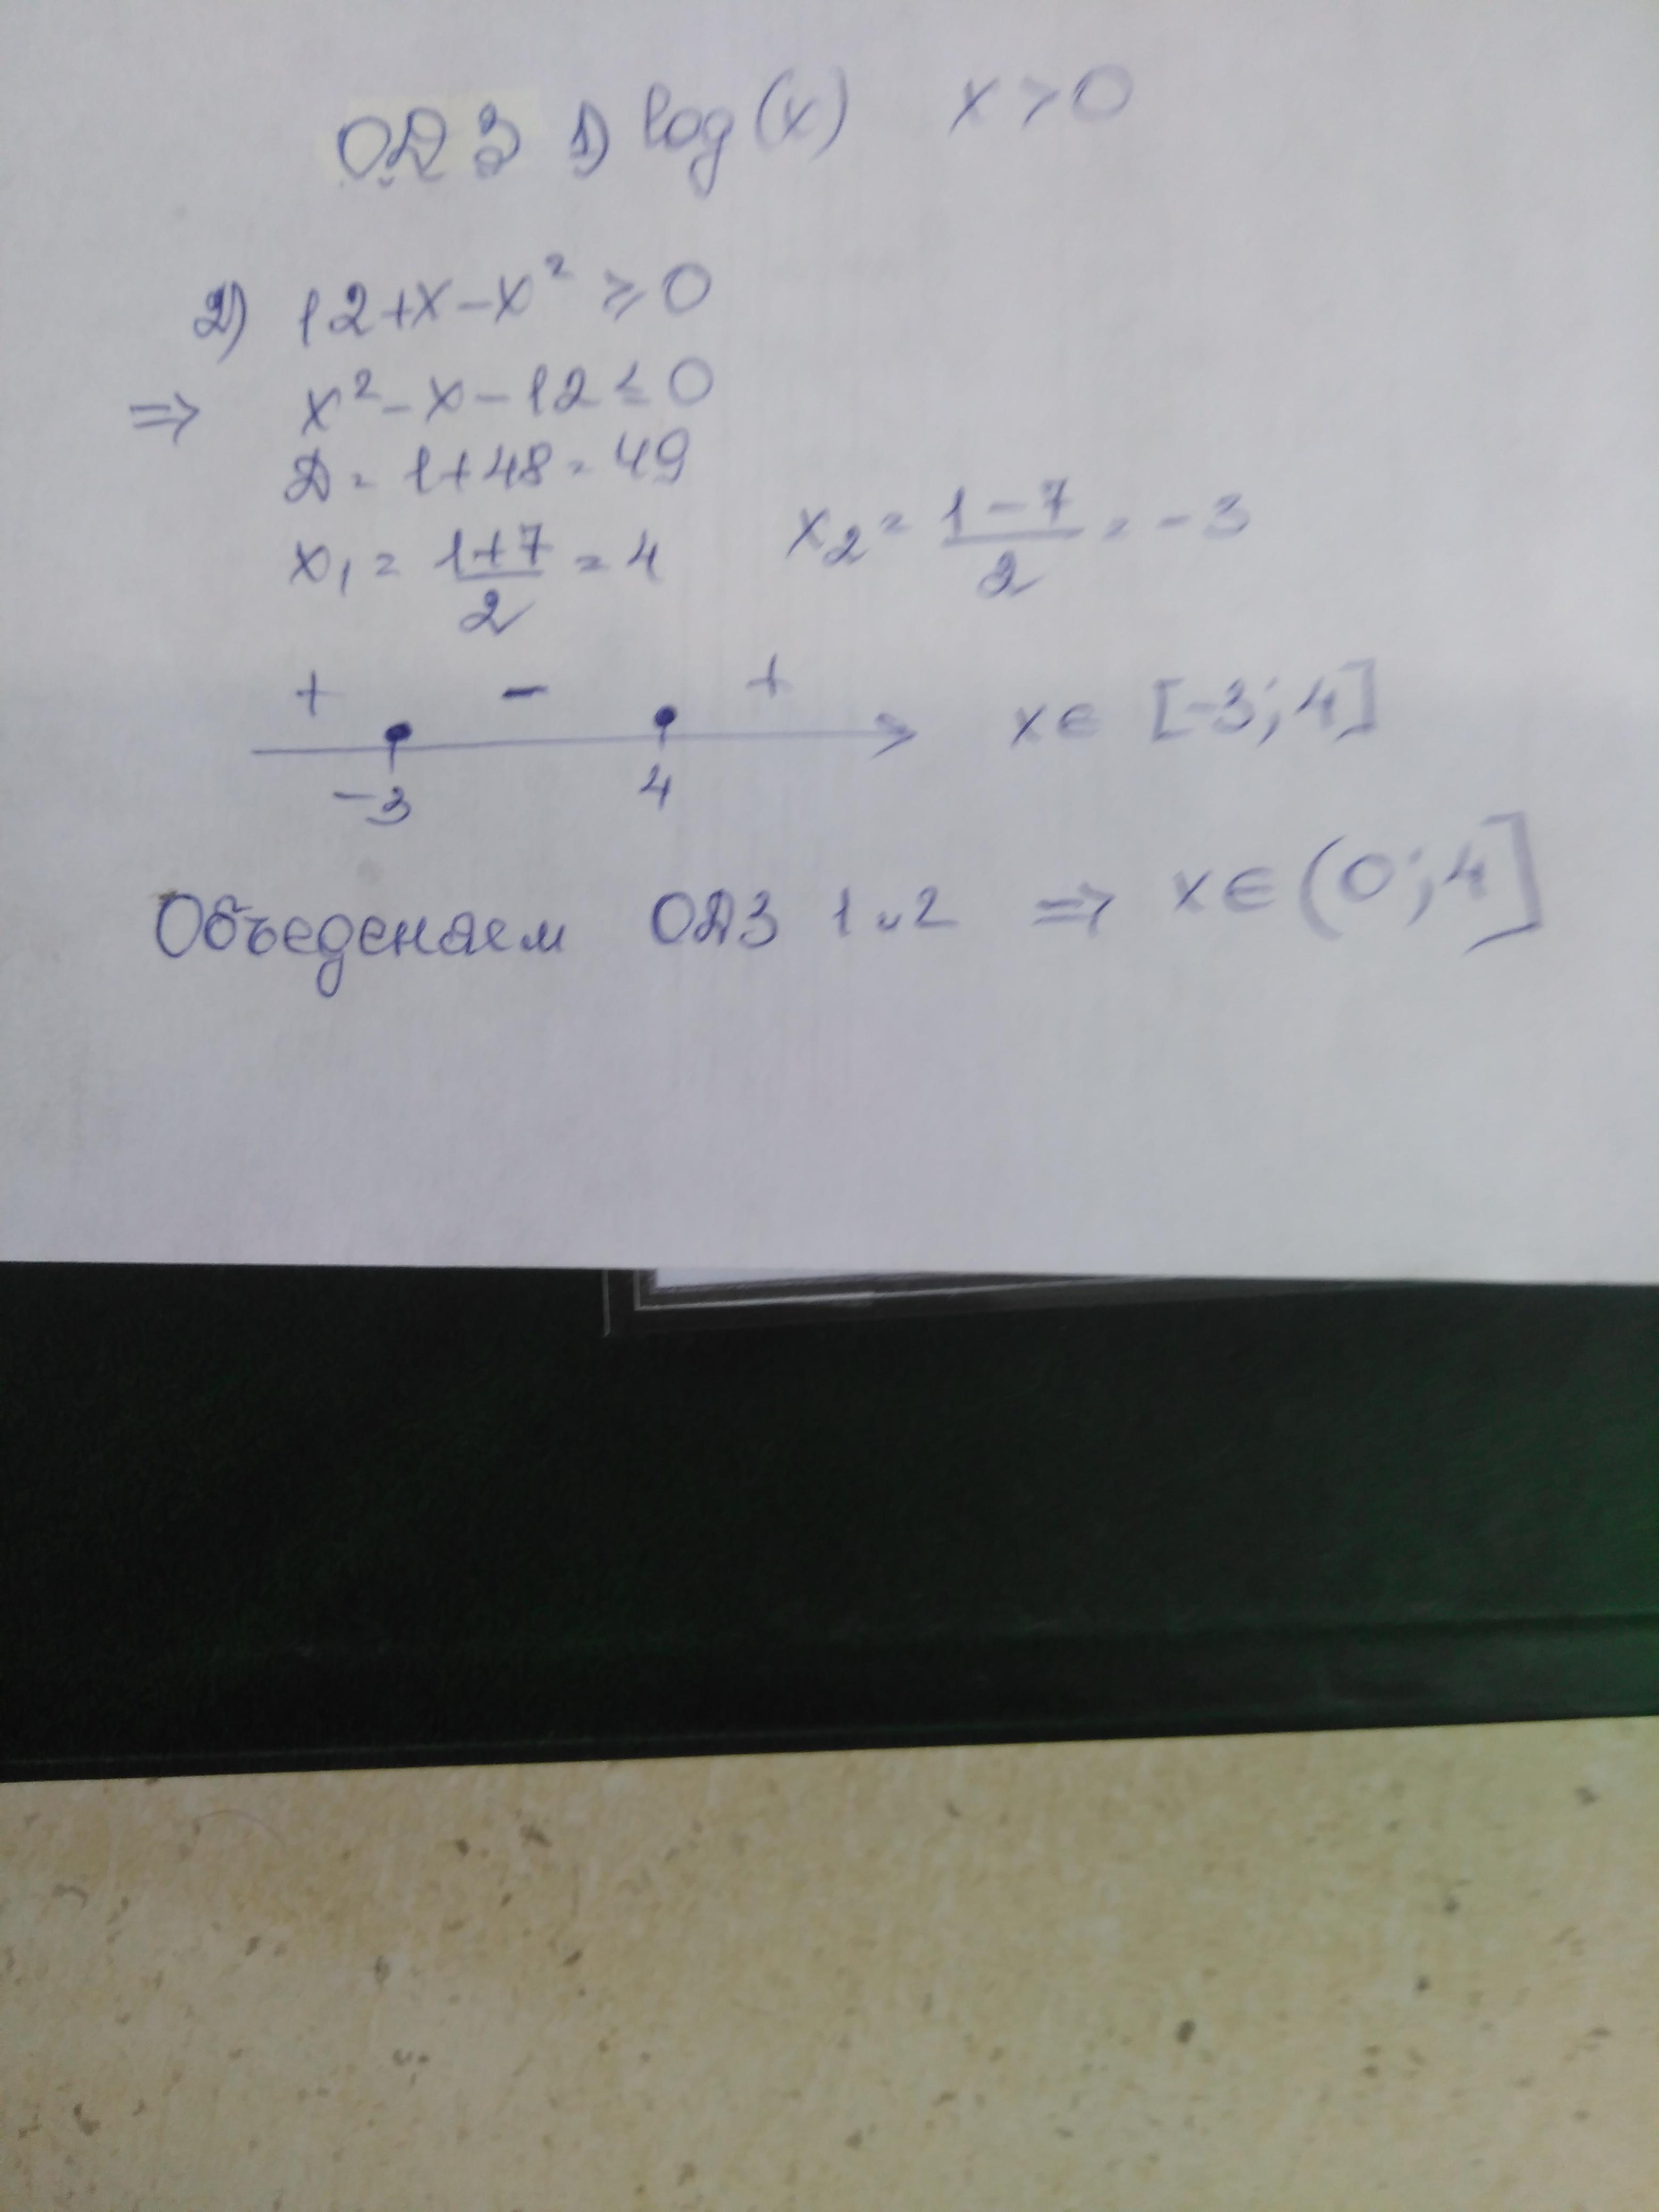 ОДЗ 1) log(x) x > 0
2) 12+x-x² ≥ 0
⇒ x²-x-12 ≤ 0
D = 1+48 = 49
x₁ = (1+7)/2 = 4 x₂ = (1-7)/2 = -3
+ - +
-3 4 x ∈ [-3; 4]
Объеденяем ОДЗ 1 и 2 ⇒ x ∈ (0; 4]